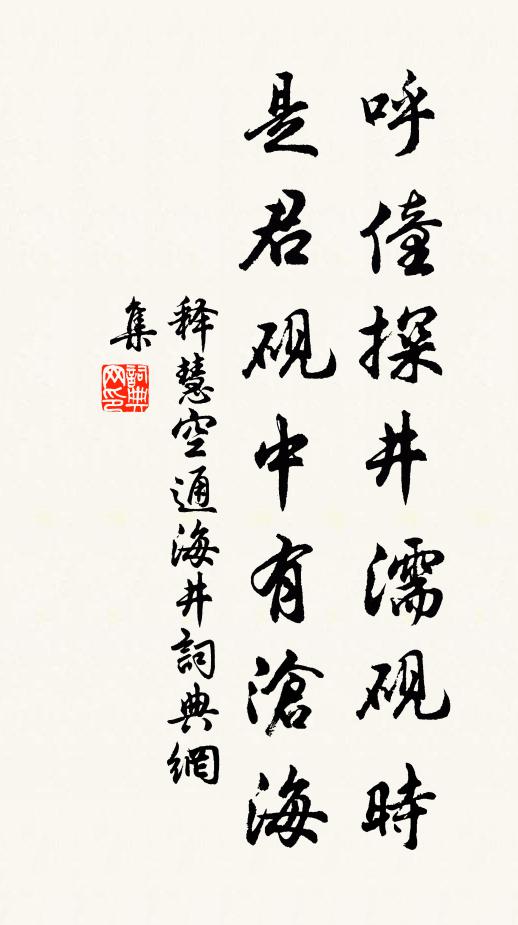 呼僮探井濡硯時
是君硯中有滄海
释慧空通海井詞典網
集
詞典網印